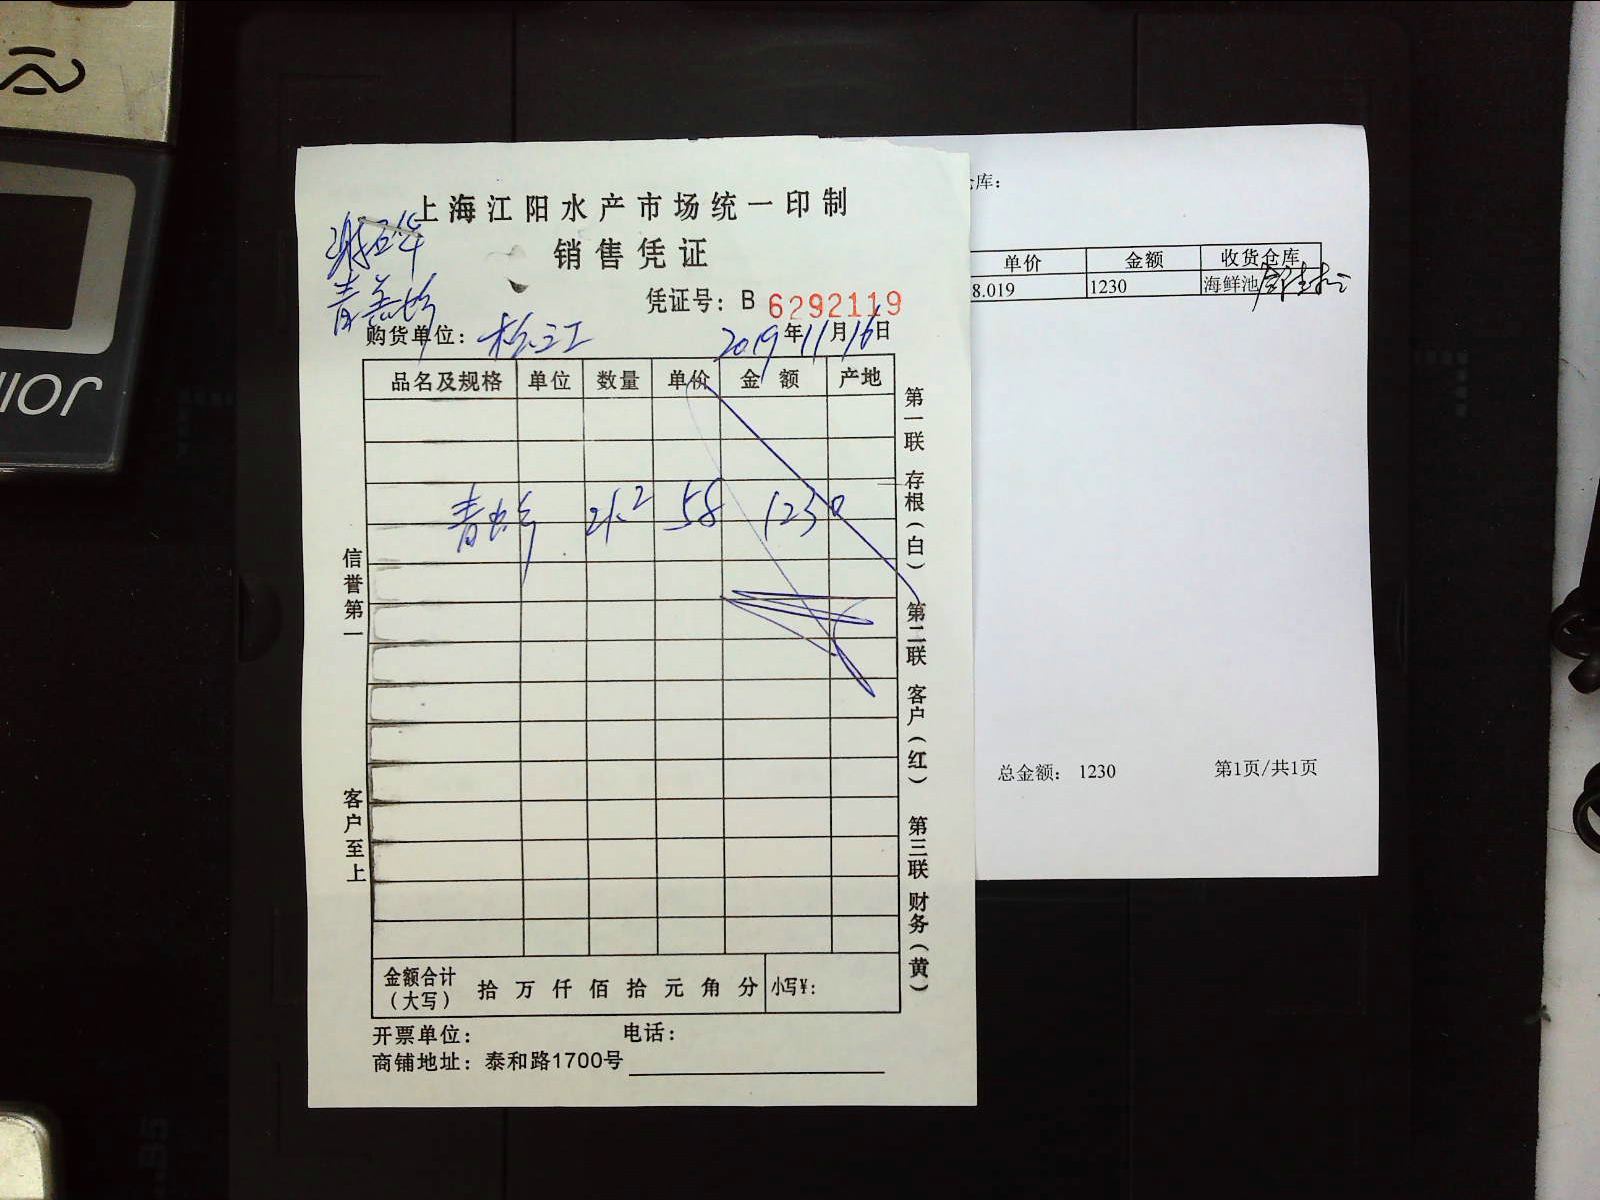 上海江阳水产市场统一印制
销售凭证
凭证号：B 6292119
购货单位：松江 2019年11月16日
品名及规格 单位 数量 单价 金额 产地
青虾 21.2 58 1230
信誉第一
客户至上
第一联 存根（白） 第二联 客户（红） 第三联 财务（黄）
金额合计（大写） 拾 万 仟 佰 拾 元 角 分 小写¥：
开票单位： 电话：
商铺地址：泰和路1700号
库：
单价 金额 收货仓库
8.019 1230 海鲜池
总金额： 1230 第1页/共1页